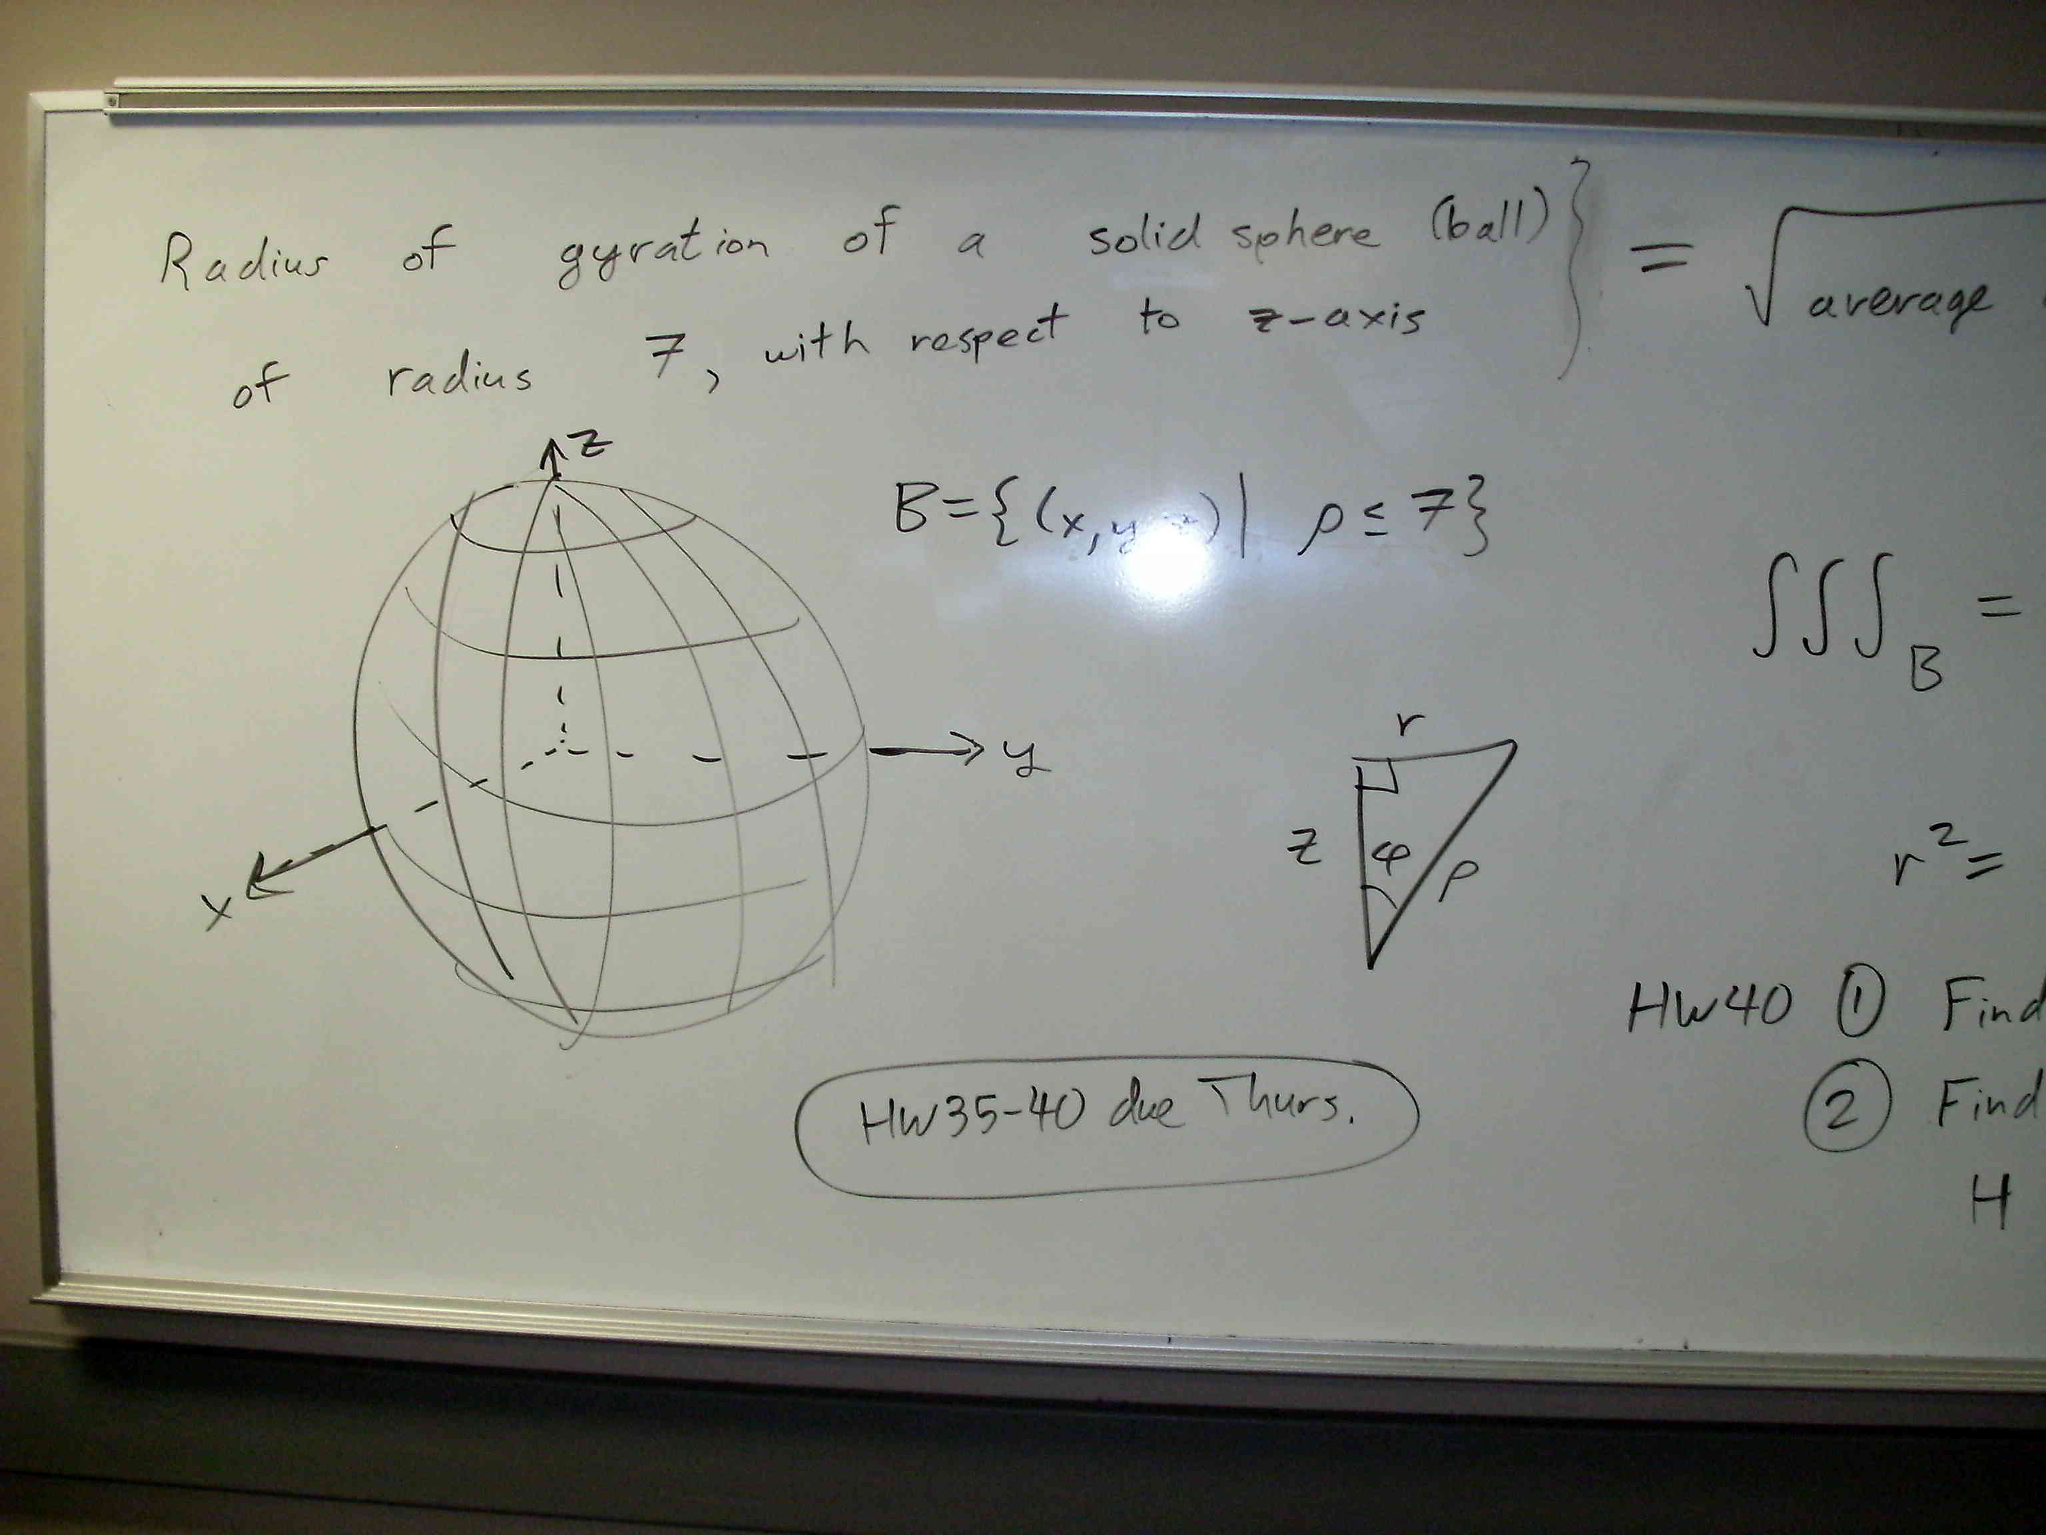 Radius of gyration of a solid sphere (ball) } = √average
of radius 7, with respect to z-axis
z
B={(x,y z)| ρ≤7}
∫∫∫B =
r
y
z φ ρ
r²=
x
HW40 ① Find
② Find
HW35-40 due Thurs.
H